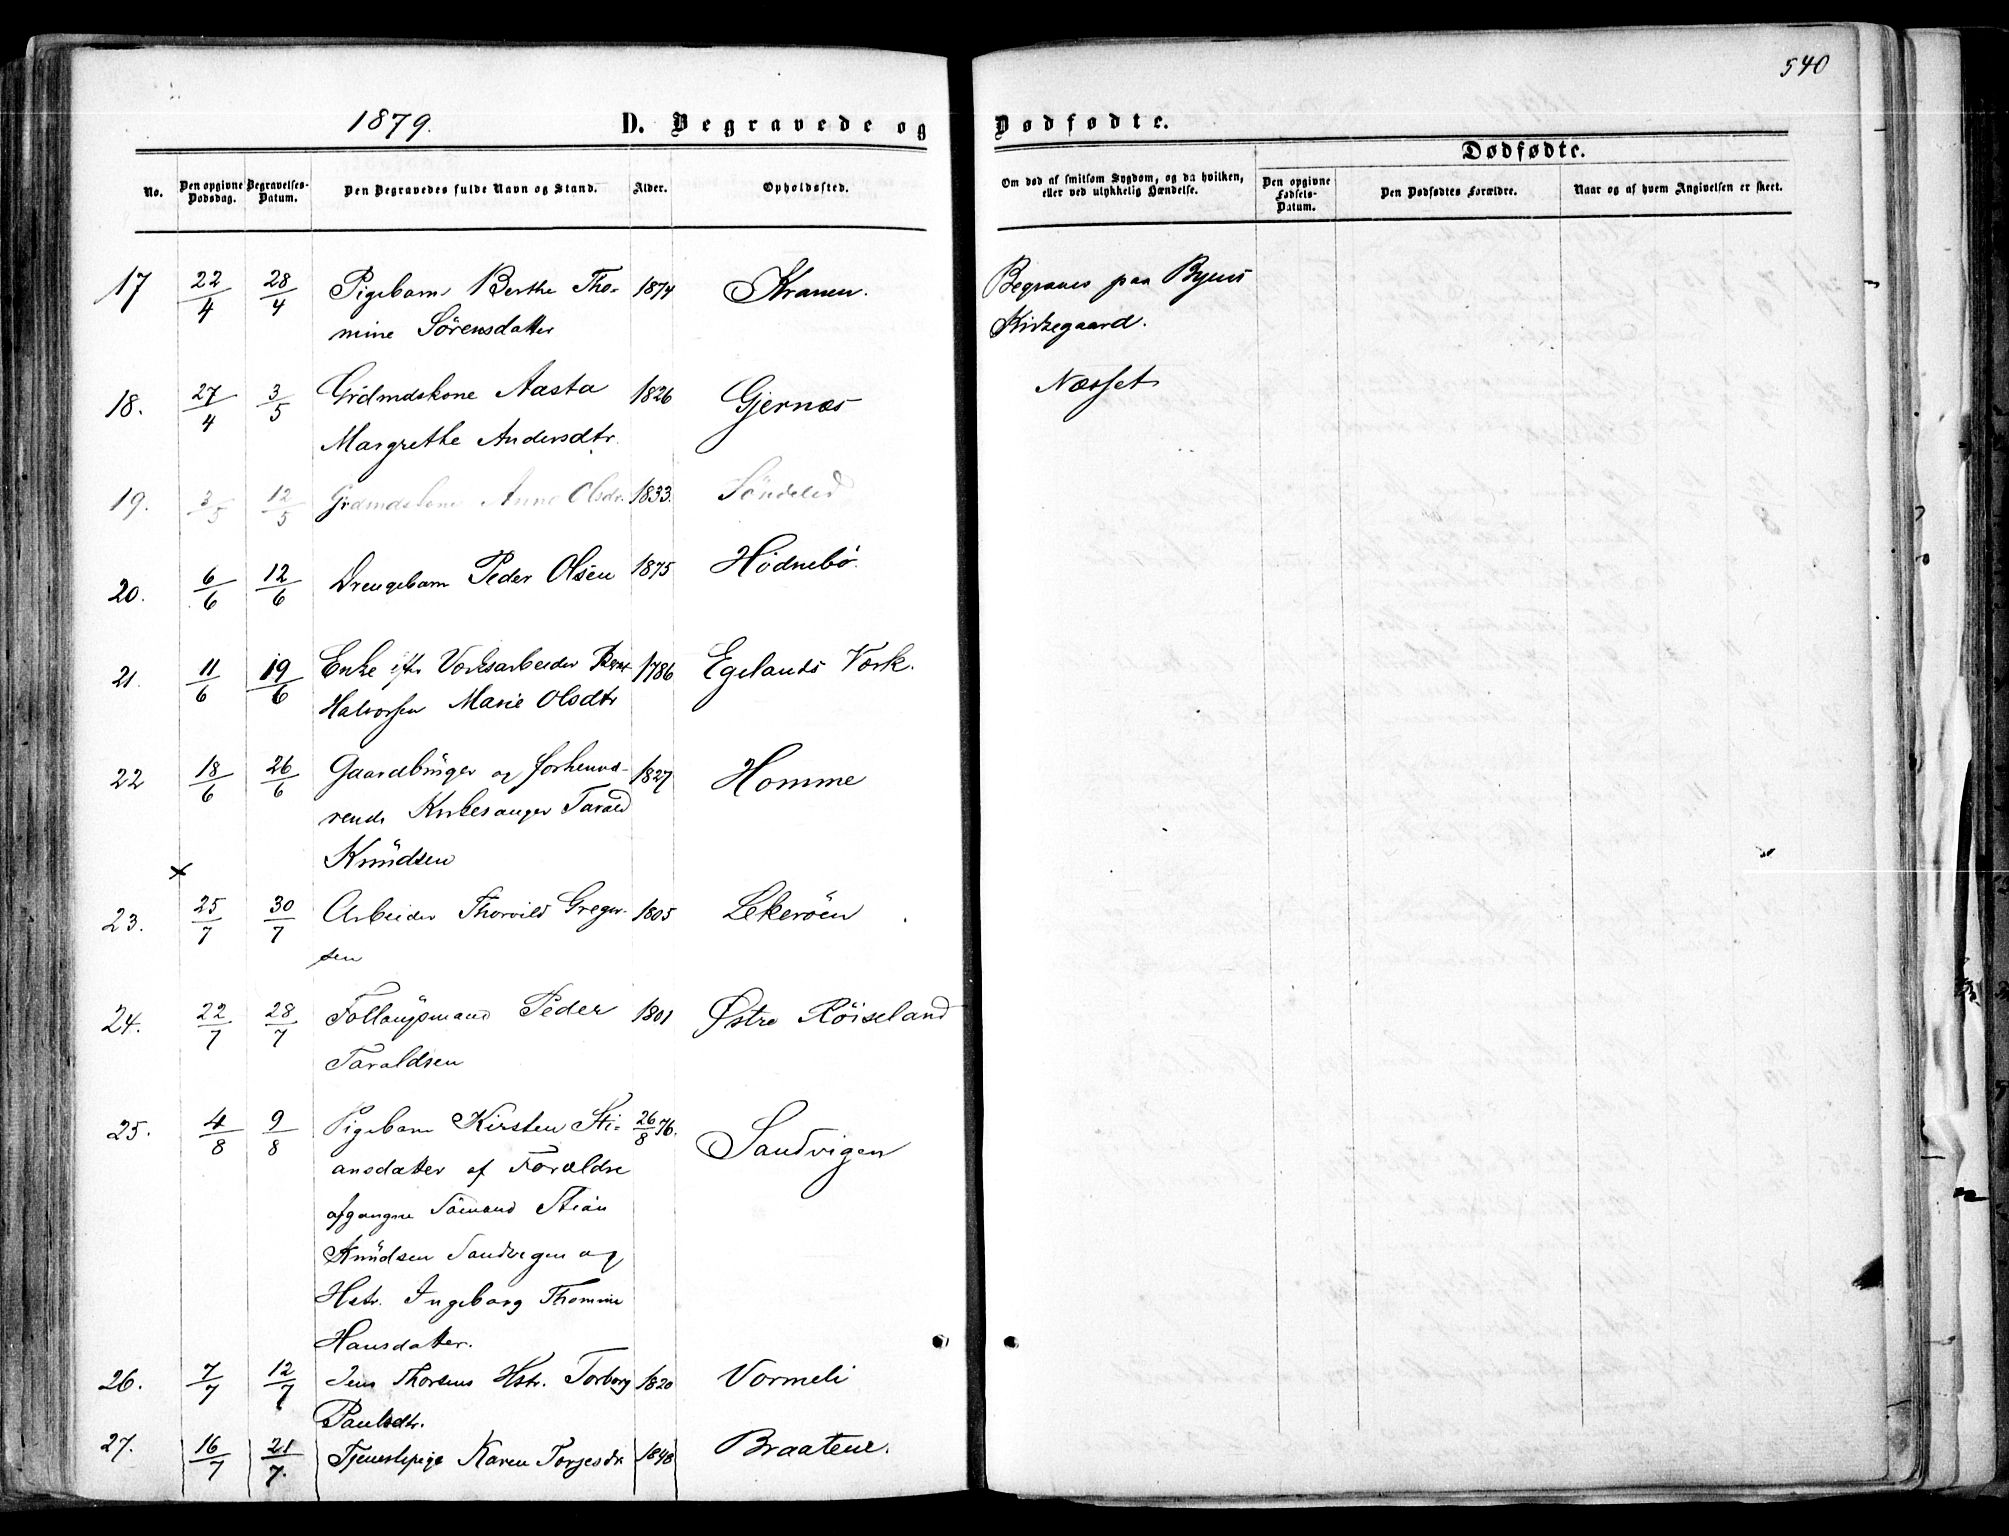 540
1879.
D. Begravede og
Dødfødte.
Dødfødte.
No.
Den opgivne Dødsdag.
Begravelses-Datum.
Den Begravedes fulde Navn og Stand.
Alder.
Opholdssted.
Om død af smitsom Sygdom, og da hvilken,
eller ved ulykkelig Hændelse.
Den opgivne Fødsels-Datum.
Den Dødfødtes Forældre.
Naar og af hvem Angivelsen er skeet.
17 22/4 28/4 Pigebarn Berthe Tho- 1874 Kranen. Begraves paa Byens
mine Sörensdatter Kirkegaard.
18. 27/4 3/5 Grdmdskone Aasta 1826 Gjernæs Næsset
Margrethe Andersdtr.
19. 3/5 12/5 Grdmdskone Anne Olsdr. 1833. Söndeled
20. 6/6 12/6 Drengebarn Peder Olsen 1875 Hödnebö.
21. 11/6 19/6 Enke eftr Værksarbeider Bent 1786 Egelands Værk.
Halvorsen Marie Olsdtr
22 18/6 26/6 Gaardbruger og forhenvæ- 1827 Homme
rende Kirkesanger Tarald
Knudsen
×
23. 25/7 30/7 Arbeider Thorvild Greger- 1805 Lekeröen
sen
24. 22/7 28/7 Follaugsmand Peder 1801 Østre Röiseland
Taraldsen
25. 4/8 9/8 Pigebarn Kirsten Sti- 26/8 76. Sandvigen
ansdatter af Forældre
afgangne Sömand Stian
Knudsen Sandvigen og
Hstr. Ingeborg Thomine
Hansdatter.
26. 7/7 12/7 Jens Thorsens Hstr. Torborg 1820 Vormeli
Paulsdtr.
27. 16/7 21/7. Tjenestepige Karen Torjesdr. 1848 Braatene.